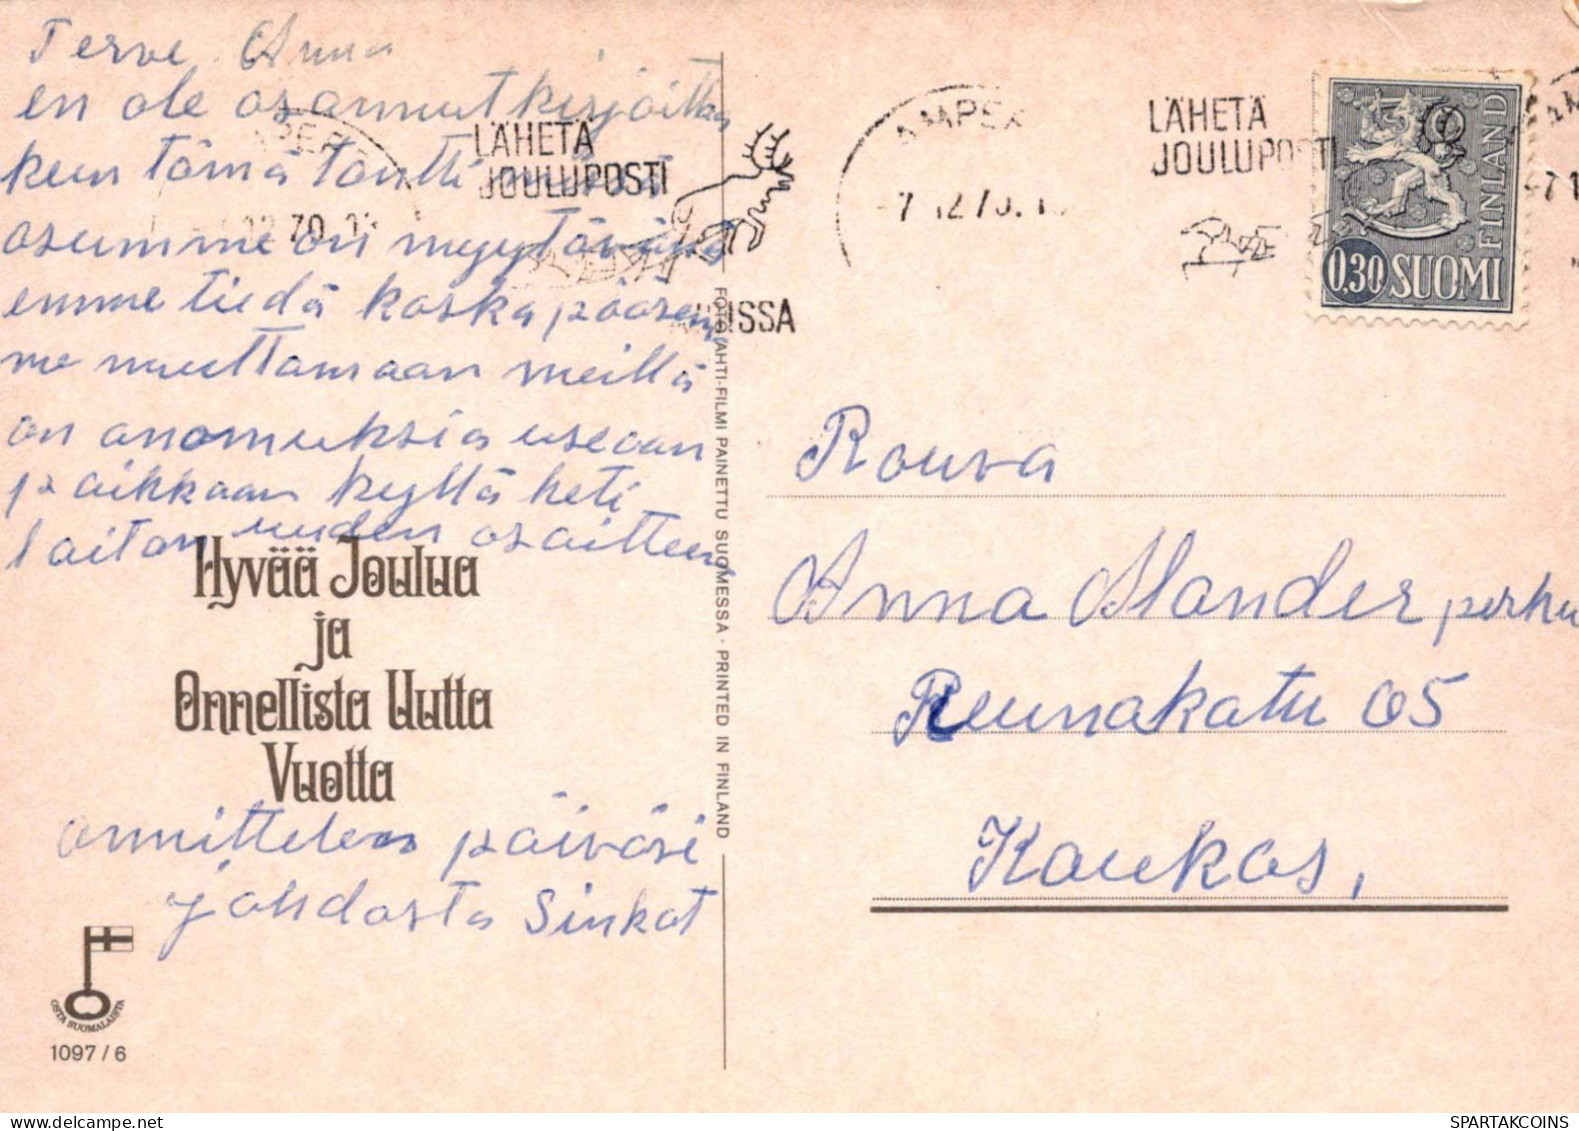 Terve Anna
en ole osannut kirjoittaa
kun tämä tontti missä
asumme on myytävänä
emme tiedä koska pääsem
me muuttamaan meillä
on anomuksia useaan
paikkaan kyllä heti
laitan uuden osoitteen
Hyvää Joulua
ja
Onnellista Uutta
Vuotta
onnittelen päiväsi
johdosta Sinkot
OSTA SUOMALAISTA
1097/6
LÄHETÄ
JOULUPOSTI
70
ISSA
FOTO: AHTI-FILMI PAINETTU SUOMESSA · PRINTED IN FINLAND
AMPER
LÄHETÄ
JOULUPOSTI
7.12.70.1
FINLAND
0,30 SUOMI
Rouva
Anna Alander, perhe
Reunakatu 05
Kaukas,
SPARTAKCOINS
delcampe.net